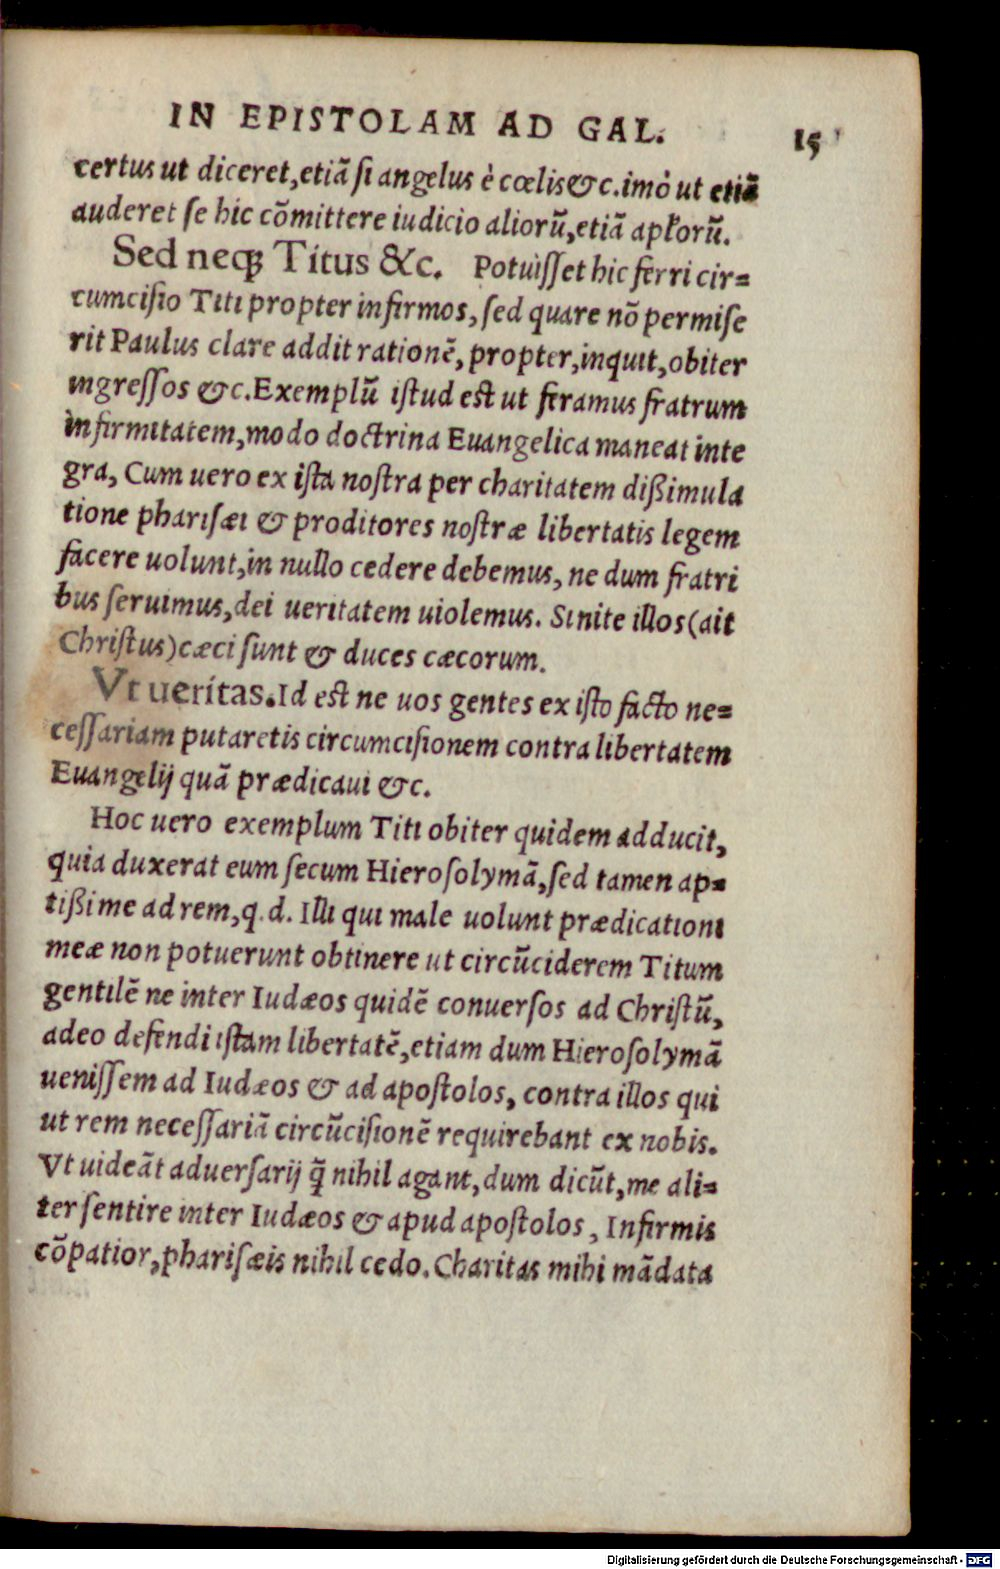 IN EPISTOLAM AD GAL. 15
certus ut diceret, etiã si angelus è cœlis &c. imò ut etiã
auderet se hic cõmittere iudicio aliorũ, etiã apłorũ.
Sed neqꝫ Titus &c. Potuisset hic ferri cir=
cumcisio Titi propter infirmos, sed quare nõ permise
rit Paulus clare addit rationẽ, propter, inquit, obiter
ingressos &c. Exemplũ istud est ut feramus fratrum
infirmitatem, modo doctrina Euangelica maneat inte
gra, Cum uero ex ista nostra per charitatem dißimula
tione pharisæi & proditores nostræ libertatis legem
facere uolunt, in nullo cedere debemus, ne dum fratri
bus seruimus, dei ueritatem uiolemus. Sinite illos (ait
Christus) cæci sunt & duces cæcorum.
Vt ueritas. Id est ne uos gentes ex isto facto ne=
cessariam putaretis circumcisionem contra libertatem
Euangelij quã prædicaui &c.
Hoc uero exemplum Titi obiter quidem adducit,
quia duxerat eum secum Hierosolymã, sed tamen ap=
tißime ad rem, q. d. Illi qui male uolunt prædicationi
meæ non potuerunt obtinere ut circũciderem Titum
gentilẽ ne inter Iudæos quidẽ conuersos ad Christũ,
adeo defendi istam libertatẽ, etiam dum Hierosolymã
uenissem ad Iudæos & ad apostolos, contra illos qui
ut rem necessariã circũcisionẽ requirebant ex nobis.
Vt uideãt aduersarij q̃ nihil agant, dum dicũt, me ali=
ter sentire inter Iudæos & apud apostolos, Infirmis
cõpatior, pharisæis nihil cedo. Charitas mihi mãdata
Digitalisierung gefördert durch die Deutsche Forschungsgemeinschaft - DFG